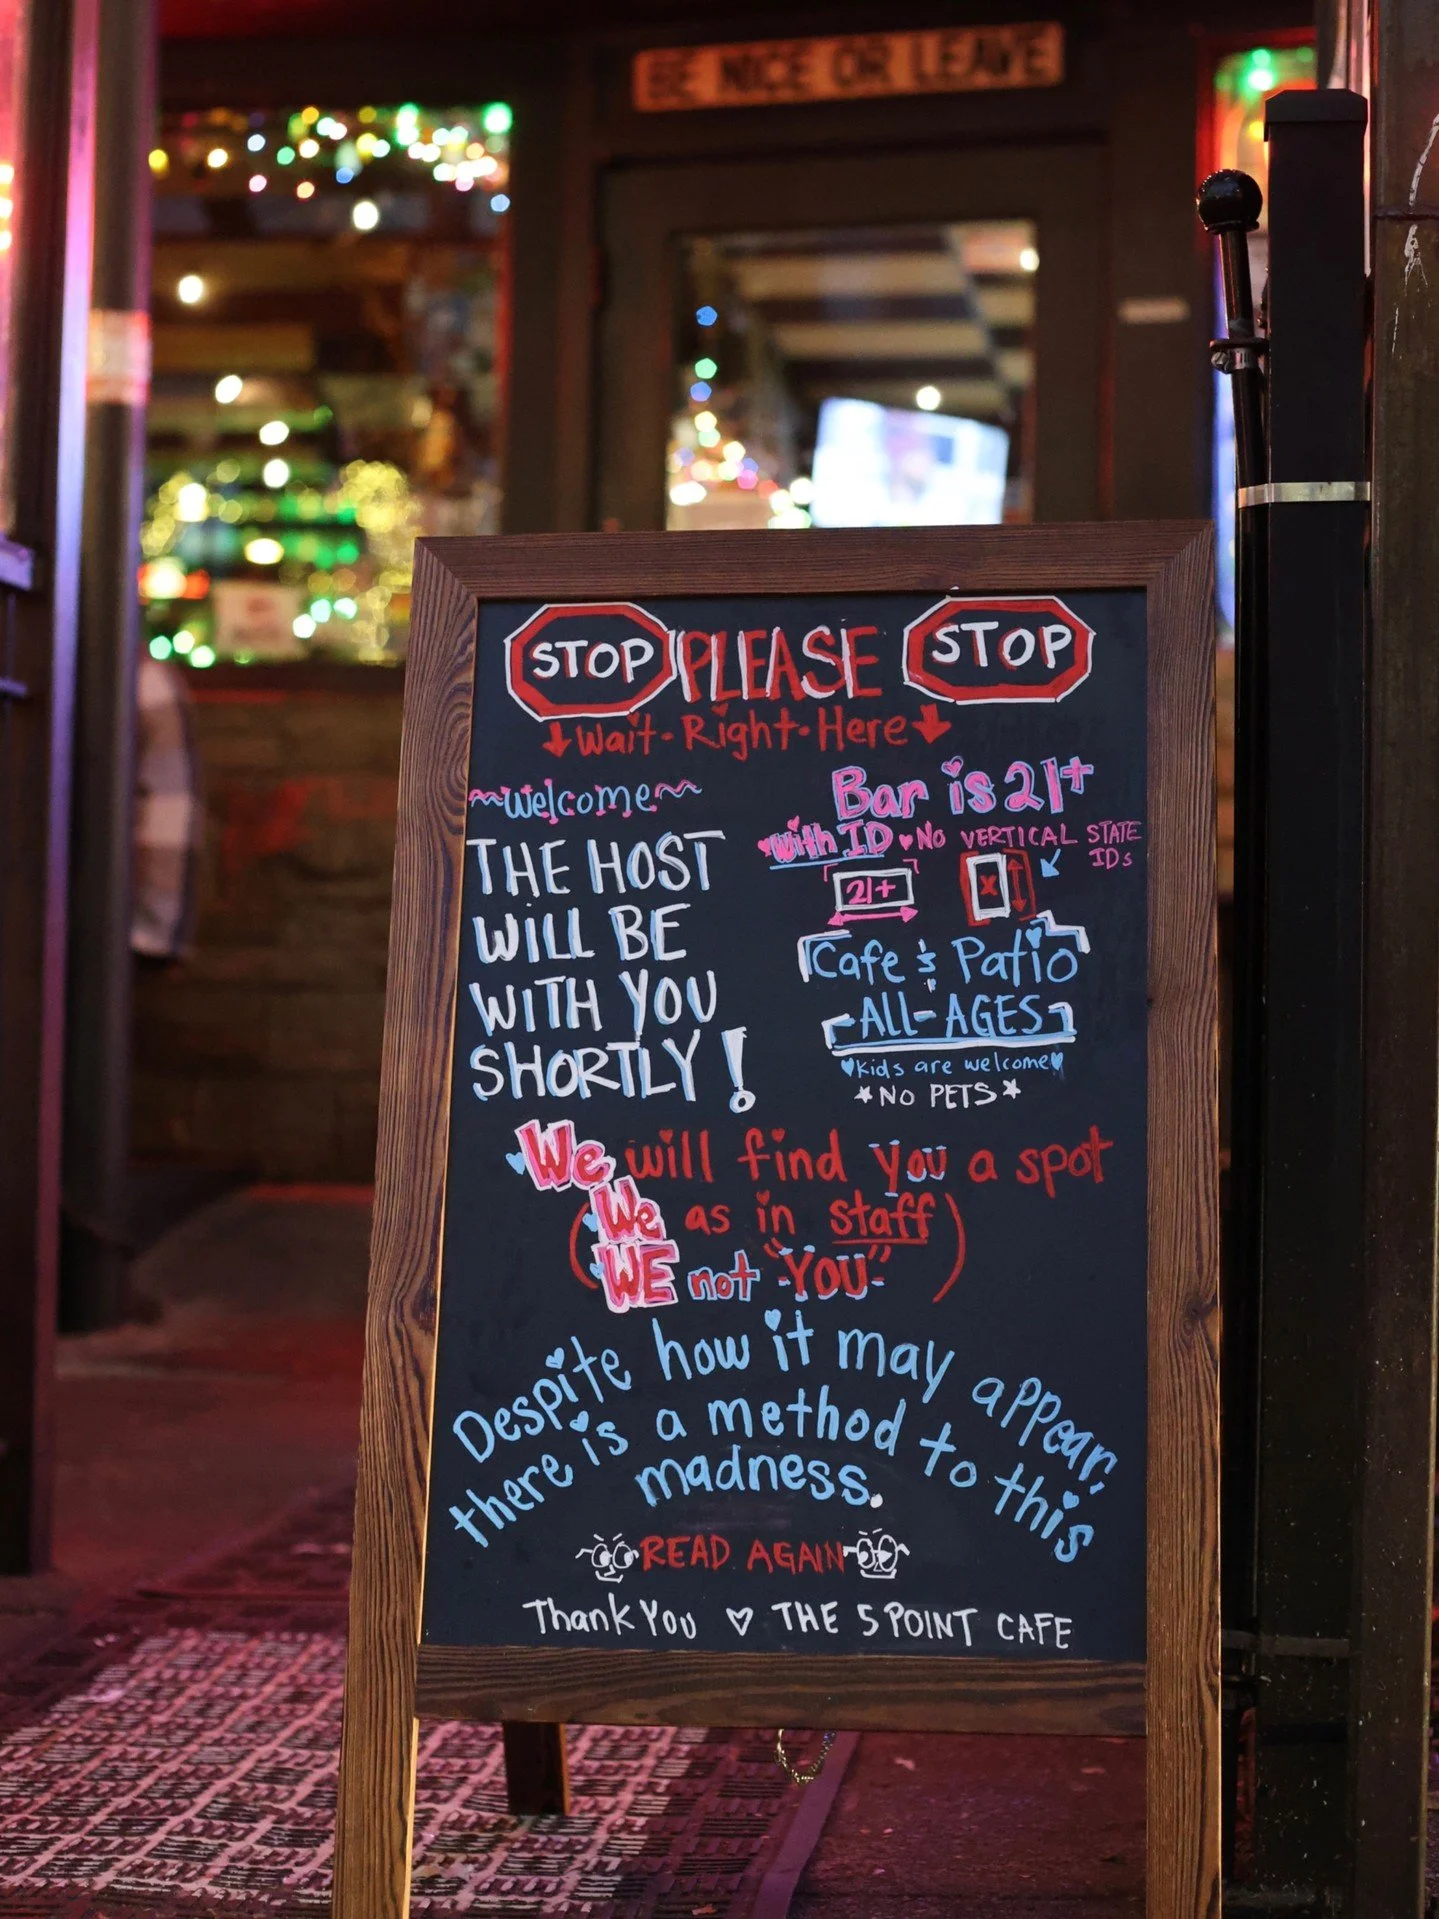 BE NICE OR LEAVE
STOP PLEASE STOP
Wait · Right · Here
~Welcome~
THE HOST
WILL BE
WITH YOU
SHORTLY!
Bar is 21+
with ID NO VERTICAL STATE
IDs
21+ X
Cafe & Patio
ALL-AGES
kids are welcome
*NO PETS*
We will find you a spot
(We as in staff
WE not "YOU")
Despite how it may appear,
there is a method to this
madness.
READ AGAIN
Thank You ♡ THE 5 POINT CAFE